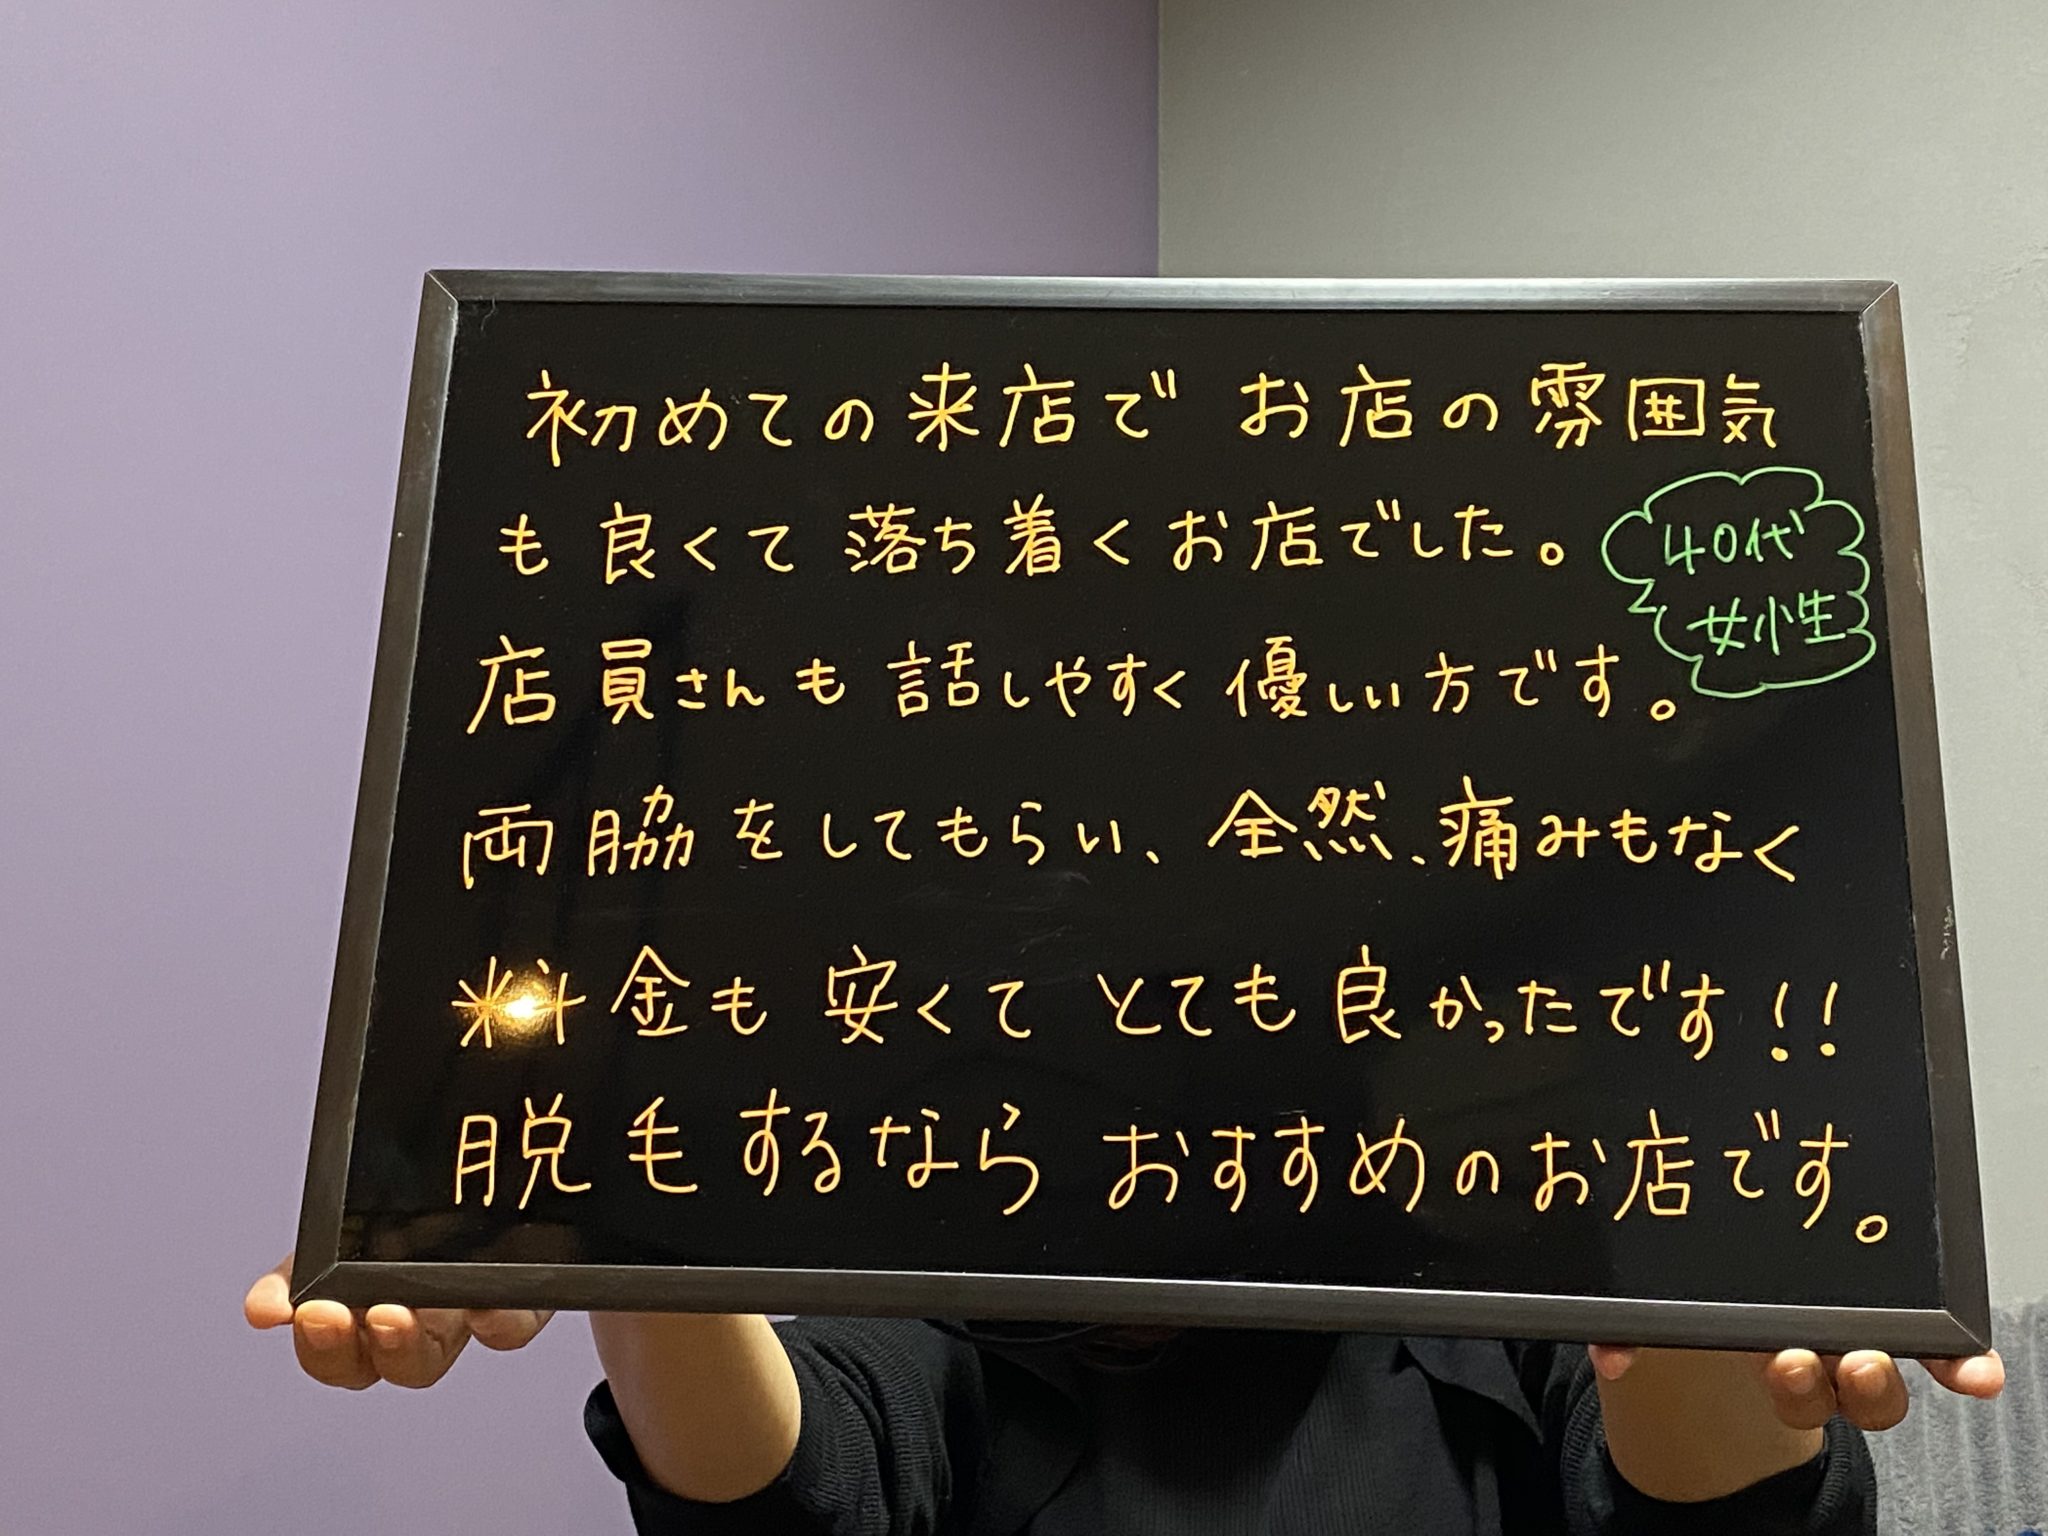 初めての来店でお店の雰囲気
も良くて落ち着くお店でした。
40代
女性
店員さんも話しやすく優しい方です。
両脇をしてもらい、全然、痛みもなく
料金も安くてとても良かったです!!
脱毛するならおすすめのお店です。